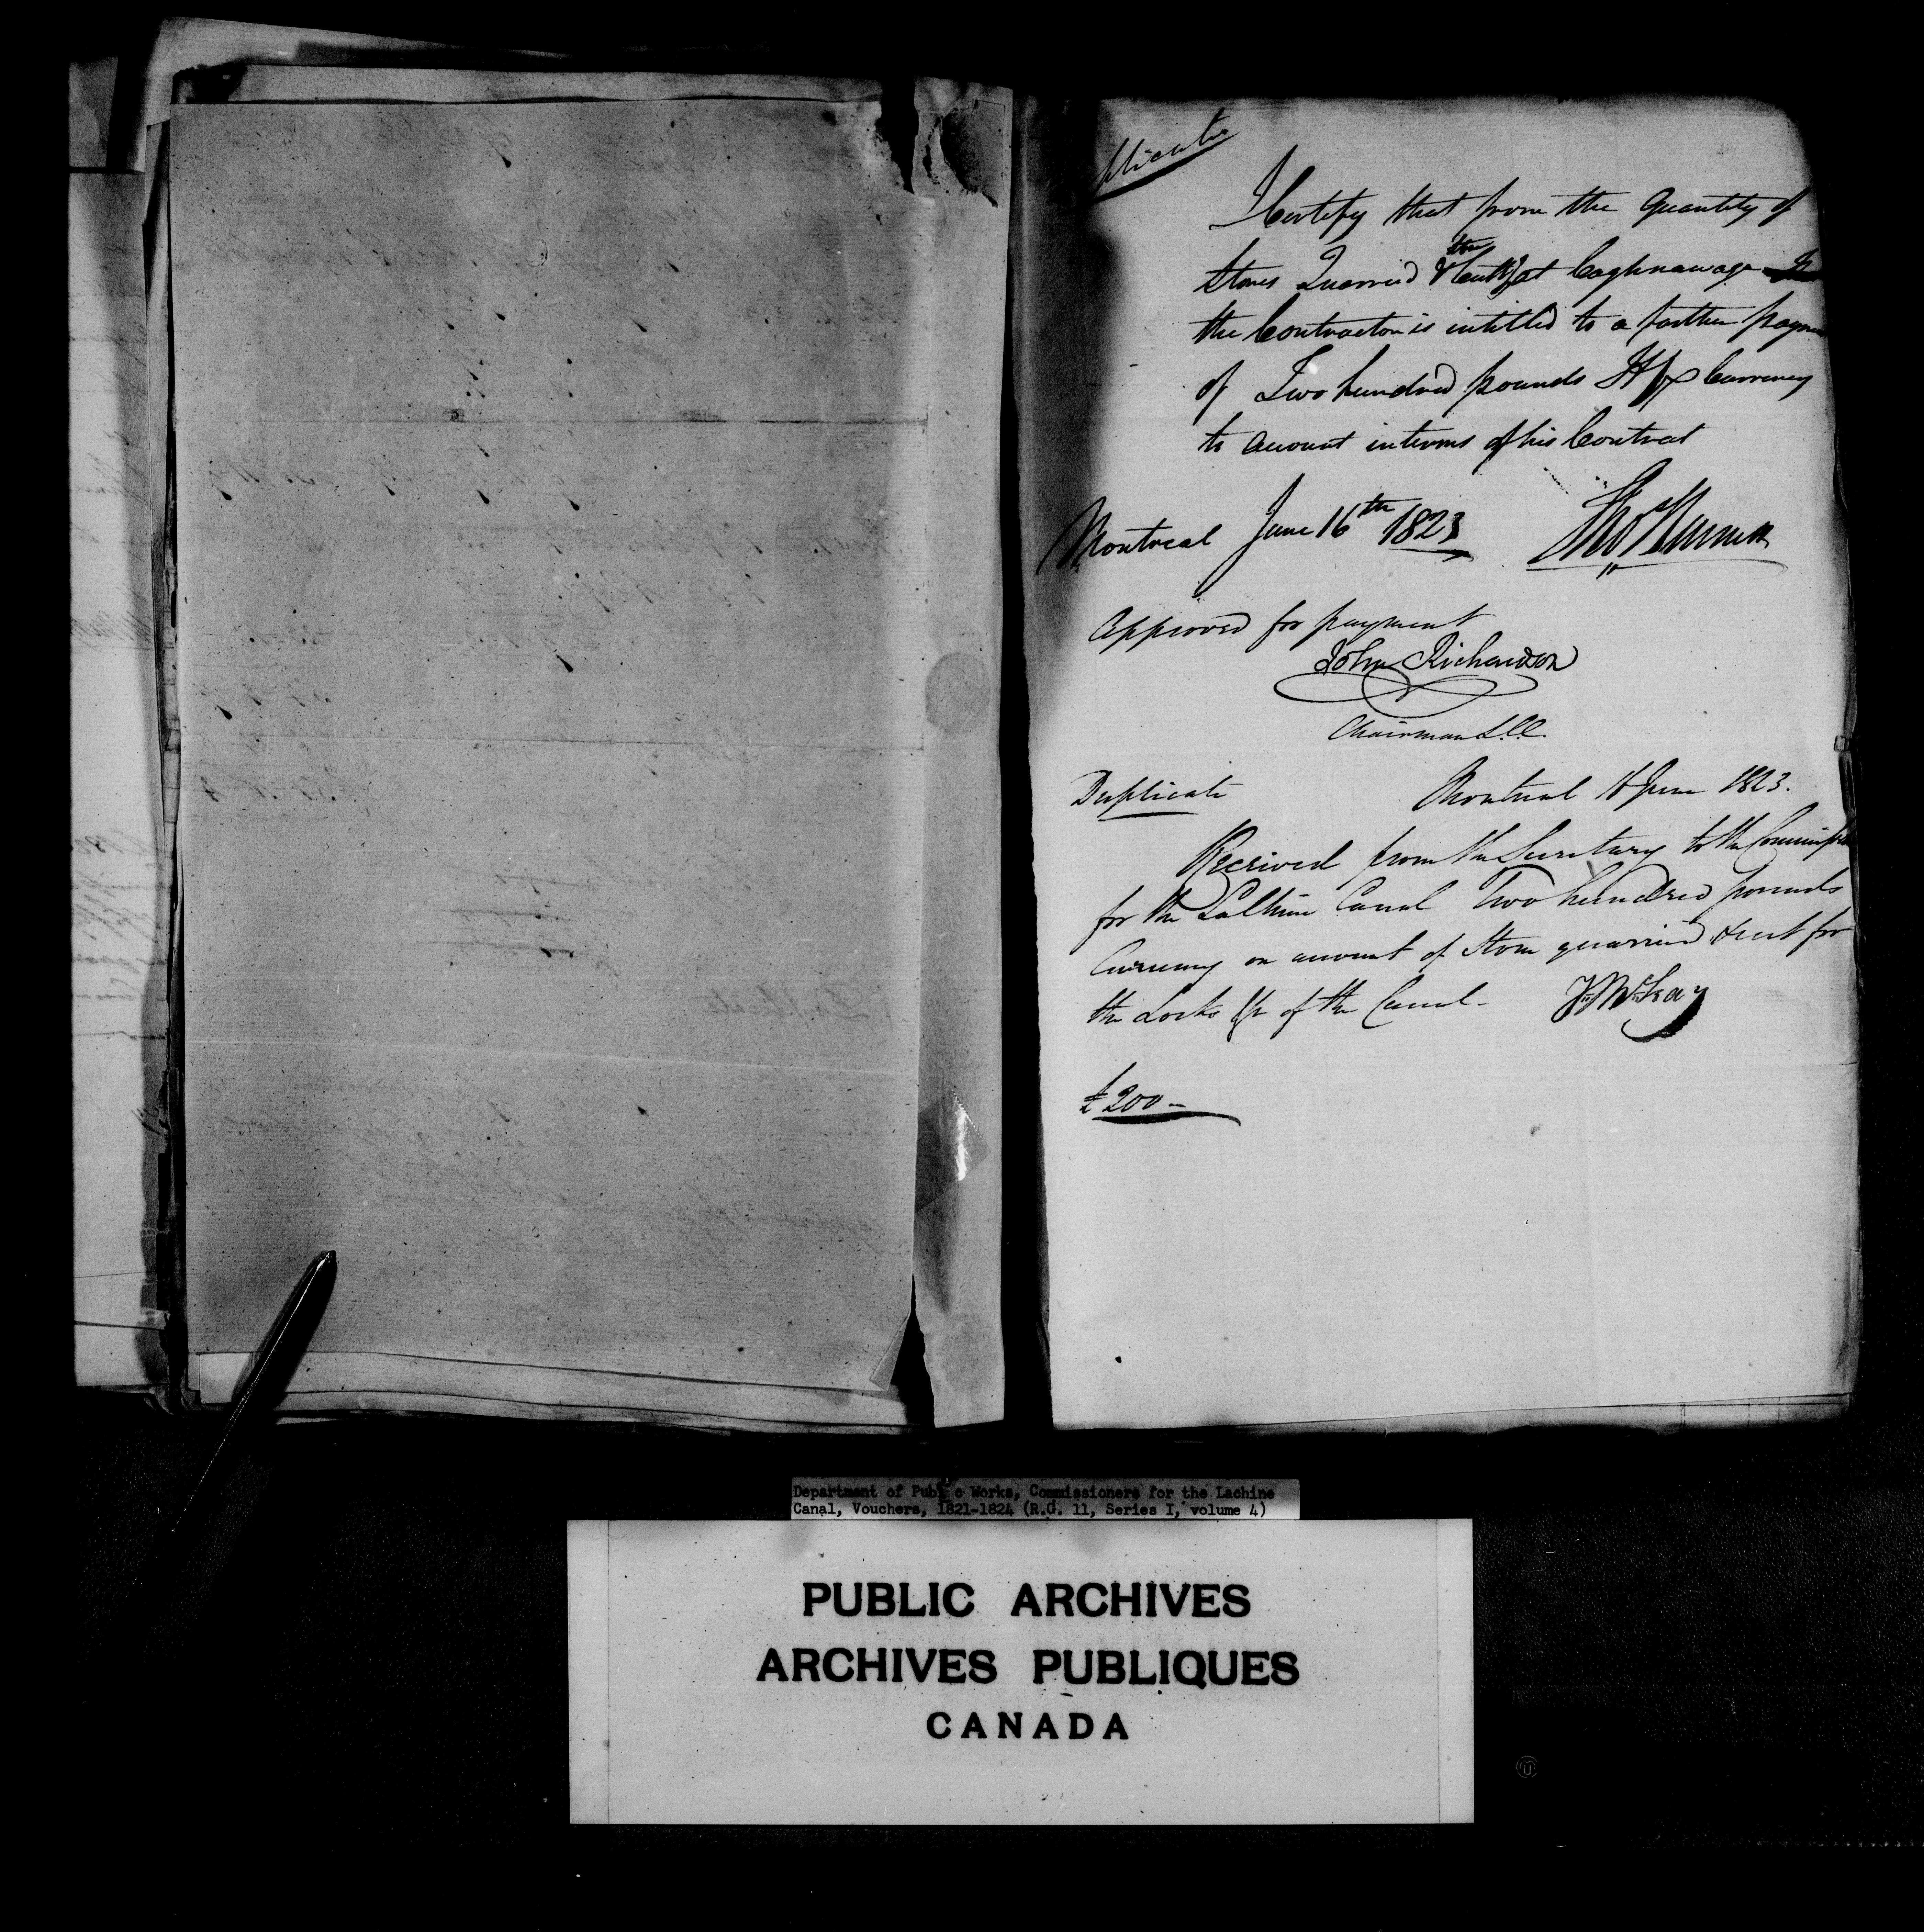 plicate
I Certify that from the Quantity of
Stones Quarried & Cutt at Caghnawaga
the Contractor is intitled to a farther paym
of Two hundred pounds Hfx Currency
to account in terms of his Contract
Montreal June 16th 1823
Approved for payment
John Richardson
Chairman L.C.C.
Duplicate Montreal 16 June 1823.
Received from the Secretary to the Commiss
for the Lachine Canal Two hundred pounds
Currency on account of Stone quarried & cut for
the Locks &c of the Canal-
£200-
Department of Public Works, Commissioners for the Lachine
Canal, Vouchers, 1821-1824 (R.G. 11, Series I, volume 4)
PUBLIC ARCHIVES
ARCHIVES PUBLIQUES
CANADA